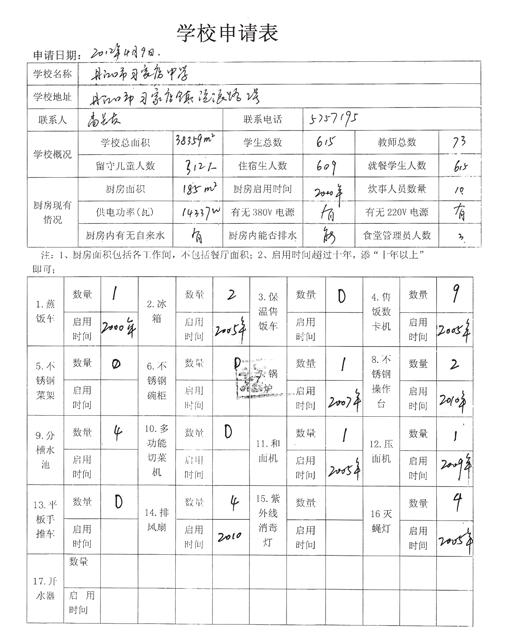 学校申请表
申请日期：2012年4月9日.
学校名称 丹江口市习家店中学
学校地址 丹江口市习家店镇
联系人 联系电话 5757195
学校概况
学校总面积 38359m² 学生总数 615 教师总数 73
留守儿童人数 312人 住宿生人数 609 就餐学生人数 615
厨房现有情况
厨房面积 185m² 厨房启用时间 2000年 炊事人员数量
供电功率(瓦) 14337W 有无380V电源 有 有无220V电源 有
厨房内有无自来水 有 厨房内能否排水 能 食堂管理员人数
注：1、厨房面积包括各工作间，不包括餐厅面积；2、启用时间超过十年，添“十年以上”
即可；
1.蒸饭车 数量 1 2.冰箱 数量 2 3.保温售饭车 数量 0 4.售饭数卡机 数量 9
启用时间 2000年 启用时间 2005年 启用时间 启用时间 2005年
5.不锈钢菜架 数量 0 6.不锈钢碗柜 数量 0 锅炉 数量 1 8.不锈钢操作台 数量 2
启用时间 启用时间 启用时间 2007年 启用时间 2010年
9.分槽水池 数量 4 10.多功能切菜机 数量 0 11.和面机 数量 1 12.压面机 数量 1
启用时间 启用时间 启用时间 2005年 启用时间 2009年
13.平板手推车 数量 0 14.排风扇 数量 4 15.紫外线消毒灯 数量 16灭蝇灯 数量 4
启用时间 启用时间 2010 启用时间 启用时间 2005年
17.开水器 数量
启用时间